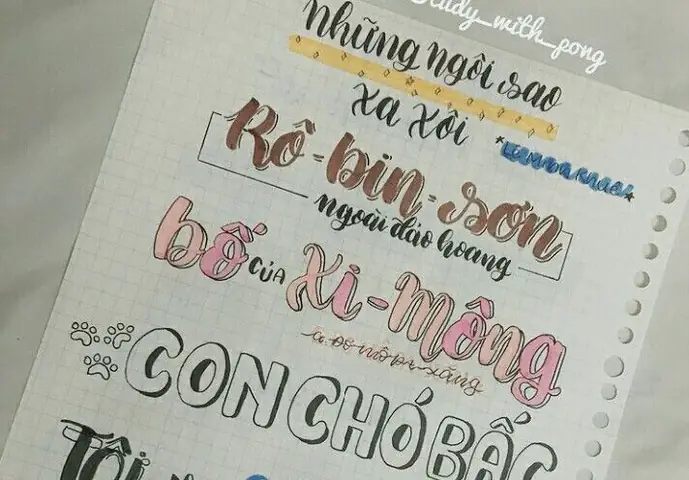 study_with_pong
những ngôi sao
xa xôi
Rô-bin-sơn
ngoài đảo hoang
bố của Xi-mông
CON CHÓ BẤC
Tôi